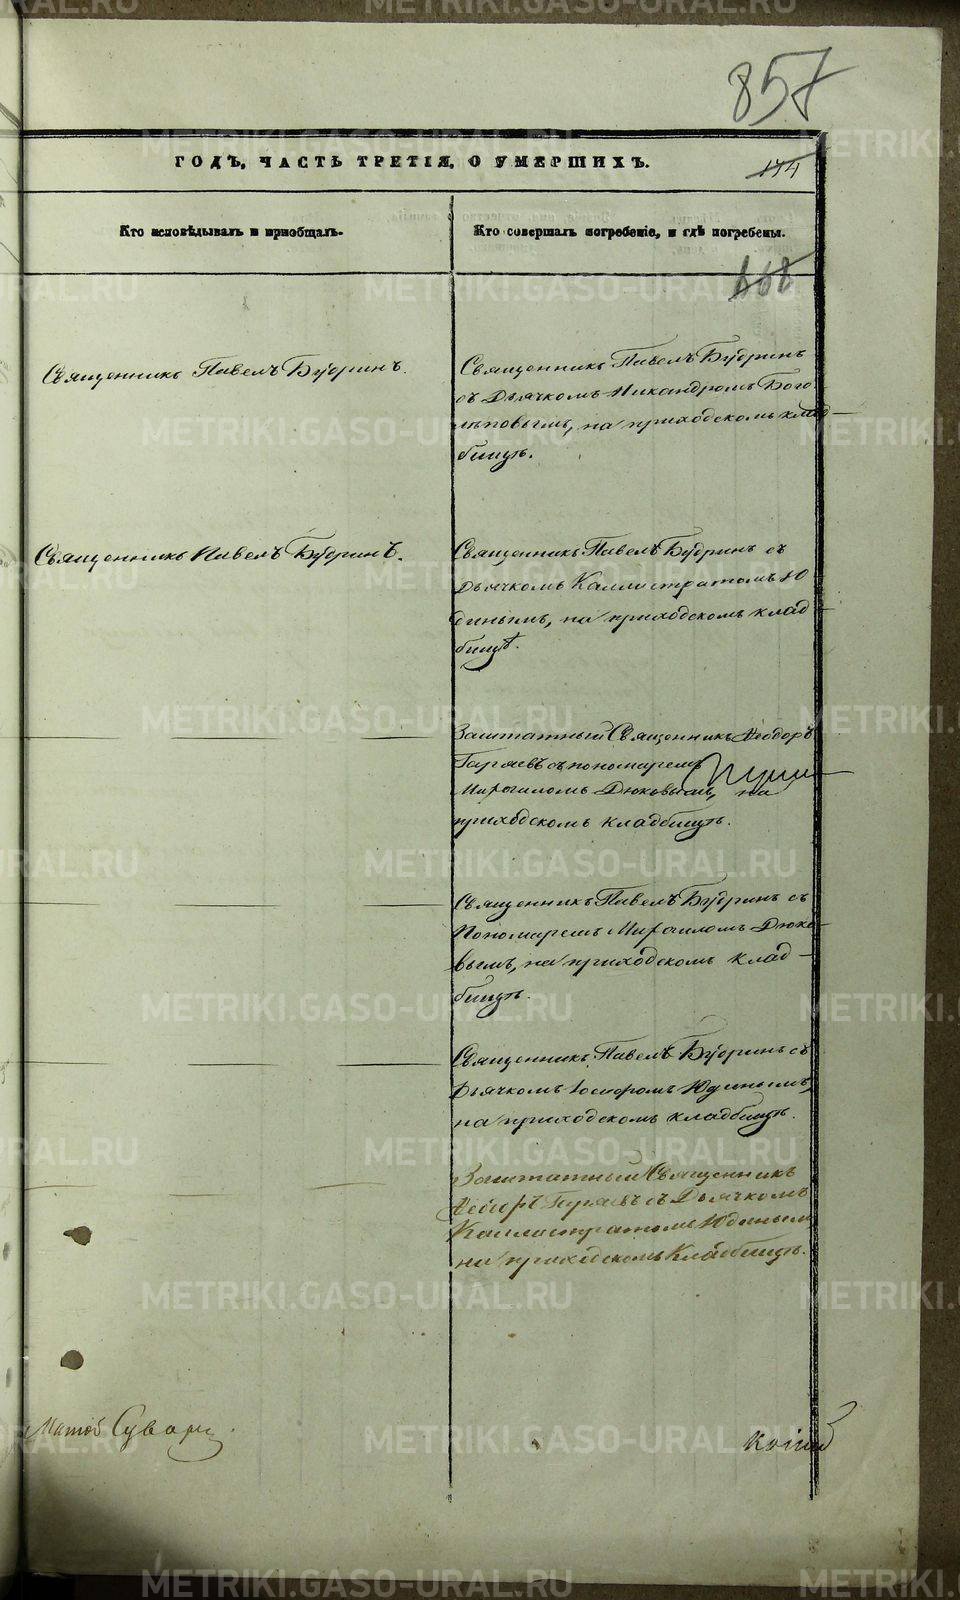 857
ГОДЪ, ЧАСТЬ ТРЕТІЯ, О УМЕРШИХЪ.
144
Кто исповѣдывалъ и пріобщалъ.
Кто совершалъ погребеніе, и гдѣ погребены.
868
Священникъ Павелъ Будринъ.
Священникъ Павелъ Будринъ
съ Дьячкомъ Никандромъ Бого-
лѣповымъ, на приходскомъ клад-
бищѣ.
Священникъ Павелъ Будринъ.
Священникъ Павелъ Будринъ съ
Дьячкомъ Каллистратомъ Ю
динымъ, на приходскомъ клад-
бищѣ.
Заштатный Священникъ Ѳеодоръ
Гаряевъ съ пономаремъ
Михаиломъ Дюковымъ, на
приходскомъ кладбищѣ.
Священникъ Павелъ Будринъ съ
Пономаремъ Михаиломъ Дюко-
вымъ, на приходскомъ клад-
бищѣ.
Священникъ Павелъ Будринъ съ
Дьячкомъ Юдинымъ,
на приходскомъ кладбищѣ.
Заштатный Священникъ
Ѳеодоръ Гаряевъ съ Дьячкомъ
Каллистратомъ Юдинымъ
на приходскомъ Кладбищѣ.
METRIKI.GASO-URAL.RU